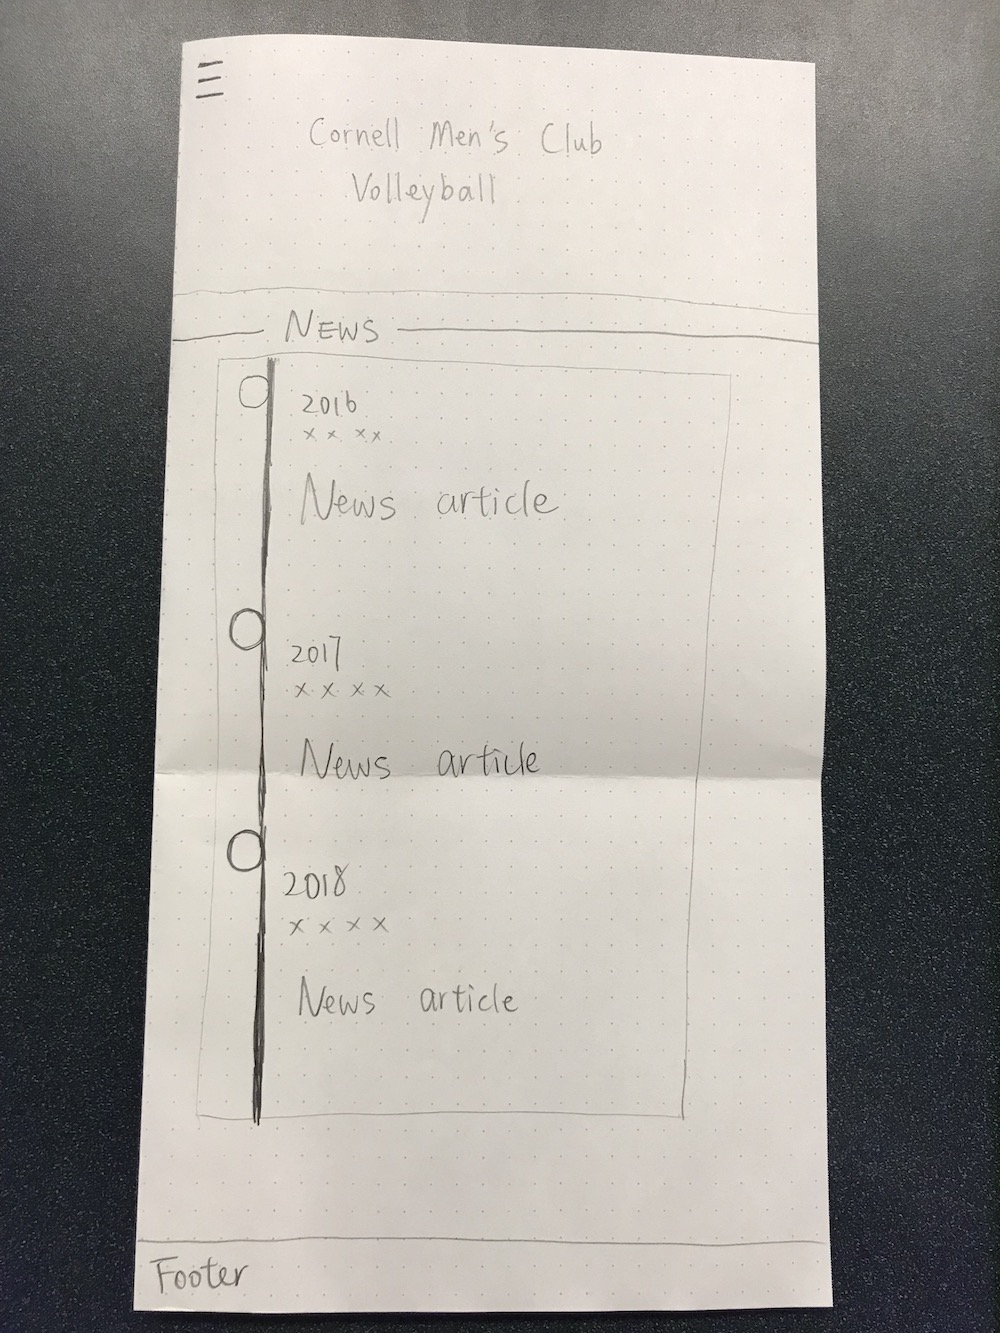 Cornell Men's Club
Volleyball
NEWS
2016
x x x x
News article
2017
x x x x
News article
2018
x x x x
News article
Footer